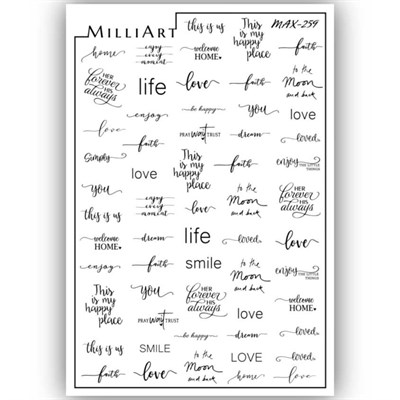 MILLIART
MAX-259
home
enjoy
every
moment
this is us
This
is my
happy
place
welcome
HOME
faith
HER
forever
HIS
always
life
love
faith
to the
Moon
and back
enjoy
be happy
you
love
faith
PRAY WAIT TRUST
dream
loved
Simply
love
This
is my
happy
place
faith
enjoy
THE LITTLE
THINGS
you
enjoy
every
moment
this is us
to the
Moon
and back
HER
forever
HIS
always
this is us
welcome
HOME
dream
life
loved
love
enjoy
faith
smile
to the
Moon
and back
enjoy
THE LITTLE
THINGS
This
is my
happy
place
You
HER
forever
HIS
always
love
welcome
HOME
PRAY WAIT TRUST
be happy
dream
loved
this is us
SMILE
this is us
LOVE
loved
faith
love
to the
Moon
and back
home
love